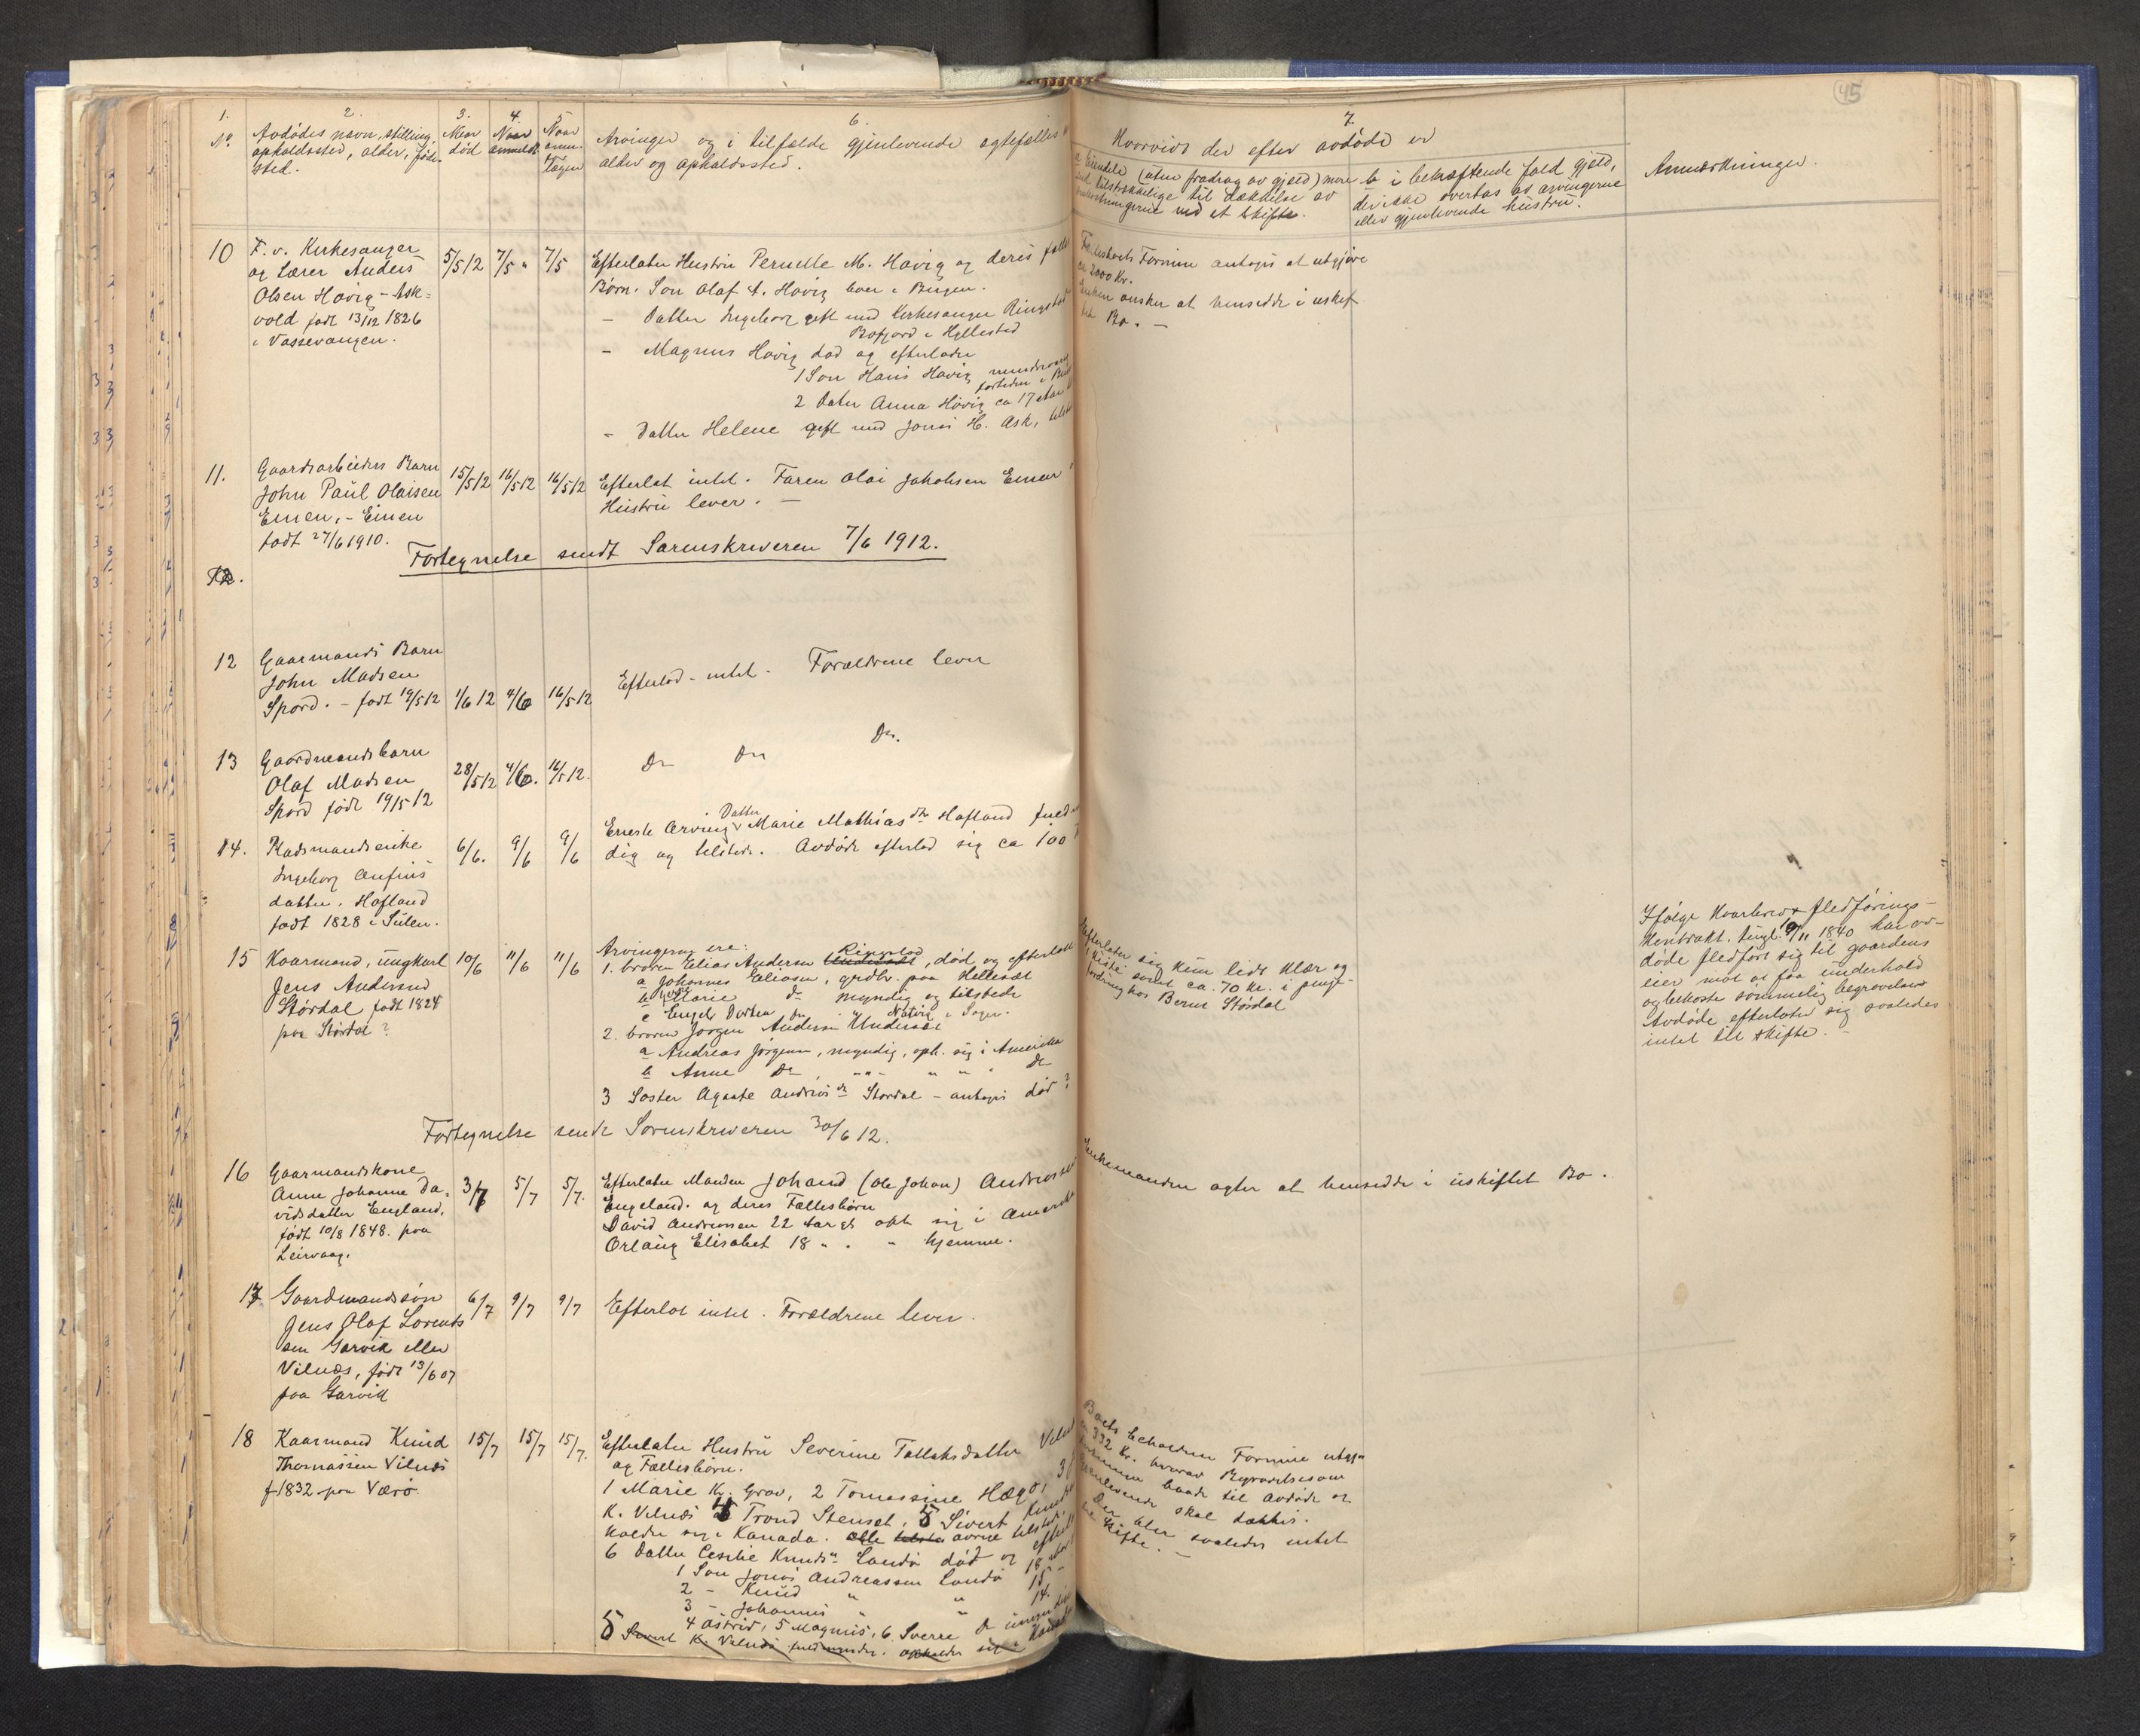 45
1.
No
2.
Avdødes navn, stilling,
opholdssted, alder, føde-
sted.
3.
Naar
død
4.
Naar
anmeldt
Naar
anm.
Tægen
6.
Arvinger og i tilfælde gjenlevende ægtefælles
alder og opholdssted.
7.
Hvorvidt der efter avdøde er
a Eiendele (uten fradrag av gjæld) mere
end tilstrækkelige til dækkelse av
omkostningerne ved et skifte.
b i bekræftende fald gjæld,
der ikke overtas av arvingerne
eller gjenlevende hustru.
Anmærkninger.
10
F. v. Kirkesanger
og Lærer Anders
Olsen Høvig - Ask-
vold født 13/12 1826
i Vossevangen.
5/5 12
7/5 "
7/5
Efterlater Hustru Pernelle M. Høvig og deres fælles
Børn. Søn Olaf A. Høvig bor i Bergen.
- Datter Ingeborg gift med Kirkesanger Ringstad
Bøfjord i Hyllestad
- Magnus Høvig død og efterlader
1 Søn Hans Høvig
2 Dater Anna Høvig ca 17 Aar
- Datter Helene gift med Jonas H. Ask,
Fællesboets Formue antages at utgjøre
ca 2000 Kr.
Enken ønsker at hensidde i uskif-
tet Bo. -
11.
Gaardsarbeiders Barn
John Paul Olaisen
Eimen, - Eimen
født 27/6 1910.
15/5 12
16/5 12
16/5 12
Efterlot intet. Faren Olai Jakobsen Eimen
Hustru lever. -
Fortegnelse sendt Sorenskriveren 7/6 1912.
12.
12
Gaarmands Barn
John Madsen
Spord. - født 19/5 12
1/6 12
4/6
16/5 12
Efterlod - intet - Forældrene lever
13
Gaardmandsbarn
Olaf Madsen
Spord født 19/5 12
28/5 12
4/6.
16/5 12.
Do Do Do.
14.
Pladsmandsenke
Ingeborg Anfins
datter. Hofland
født 1828 i Sulen.
6/6.
9/6
9/6
Datter
Eneste Arving Marie Mathias dtr Hofland
dig og tilstede. Avdøde efterlod sig ca 100
15
Kaarmand, ungkarl
Jens Andersen
Størdal, født 1824
paa Størdal?
10/6
11/6
11/6
Arvingerne ere:
Ringstad
1. broren Elias Andersen , død og efterlatt
a Johannes Eliasen, grdbr. paa Hellesæt
b Marie do myndig og tilstede
c Engel Dorthea do " Nature i Sogn.
2. broren Jørgen Andersen Undersæt
a Andreas Jørgensen, myndig, oph. sig i Amerika
b Anne Do , " " " " do
3 Søster Agaate Andrisdr Størdal - antages død?
Efterlater sig kun lidt Klær og
1 kiste samt ca. 70 Kr. i penge-
fordring hos Bernt Størdal
Ifølge hoarhered fledførings-
kontrakt, tingl. 19/11 1840 har av-
døde fledført sig til gaardens
eier mot at faa underhold
og bekoste sømmelig begravelse
Avdøde efterlater sig saaledes
intet til skifte. -
Fortegnelse sendt Sorenskriveren 30/6 12.
16
Gaarmandskone
Anne Johanne Da-
vidsdatter Engeland,
født 10/8 1848. paa
Leirvaag.
3/7
5/7
5/7.
Efterlater Manden Johand (Ole Johan) Andreassen
Engeland. og deres Fællesbørn
David Andreassen 22 Aar gl oph sig i Amerika
Orlaug Elisabet 18 " . " hjemme.
Enkemanden agter at hensidde i uskiftet Bo.
17
Gaardmandssøn
Jens Olaf Lorents
sen Garvik eller
Vilnes, født 13/6 07
paa Garvik
6/7
9/7
9/7
Efterlot intet. Forældrene lever.
18
Kaarmand Knud
Thomassen Vilnes
f 1832 paa Værø.
15/7
15/7
15/7.
Efterlater Hustru Severine Tollaksdatter Vilnes
og Fællesbørn.
1 Marie K. Grov, 2 Tomassine Hægø, 3
K. Vilnes 4 Trond Stenset, 5 Sivert Knuds
holder sig i Kanada. alle tilste øvrige tilstede.
6 Datter Cesilie Knudsdr Landø død og efterl
1 Søn Jonas Andreassen Landø 18 aar
2 - Knud " " 15 -
3 - Johannes " " 14.
4 Astrid, 5 Magnus, 6 Sverre
5 Sivert K. Vilnes fuldmyndig. opholder sig i Kanada
Boets beholdne Formue utgjør
ca 332 Kr. hvorav Begravelsesom
kostninger baade til avdøde og
gjenlevende skal dækkes.
Der blir saaledes intet
til skifte. -